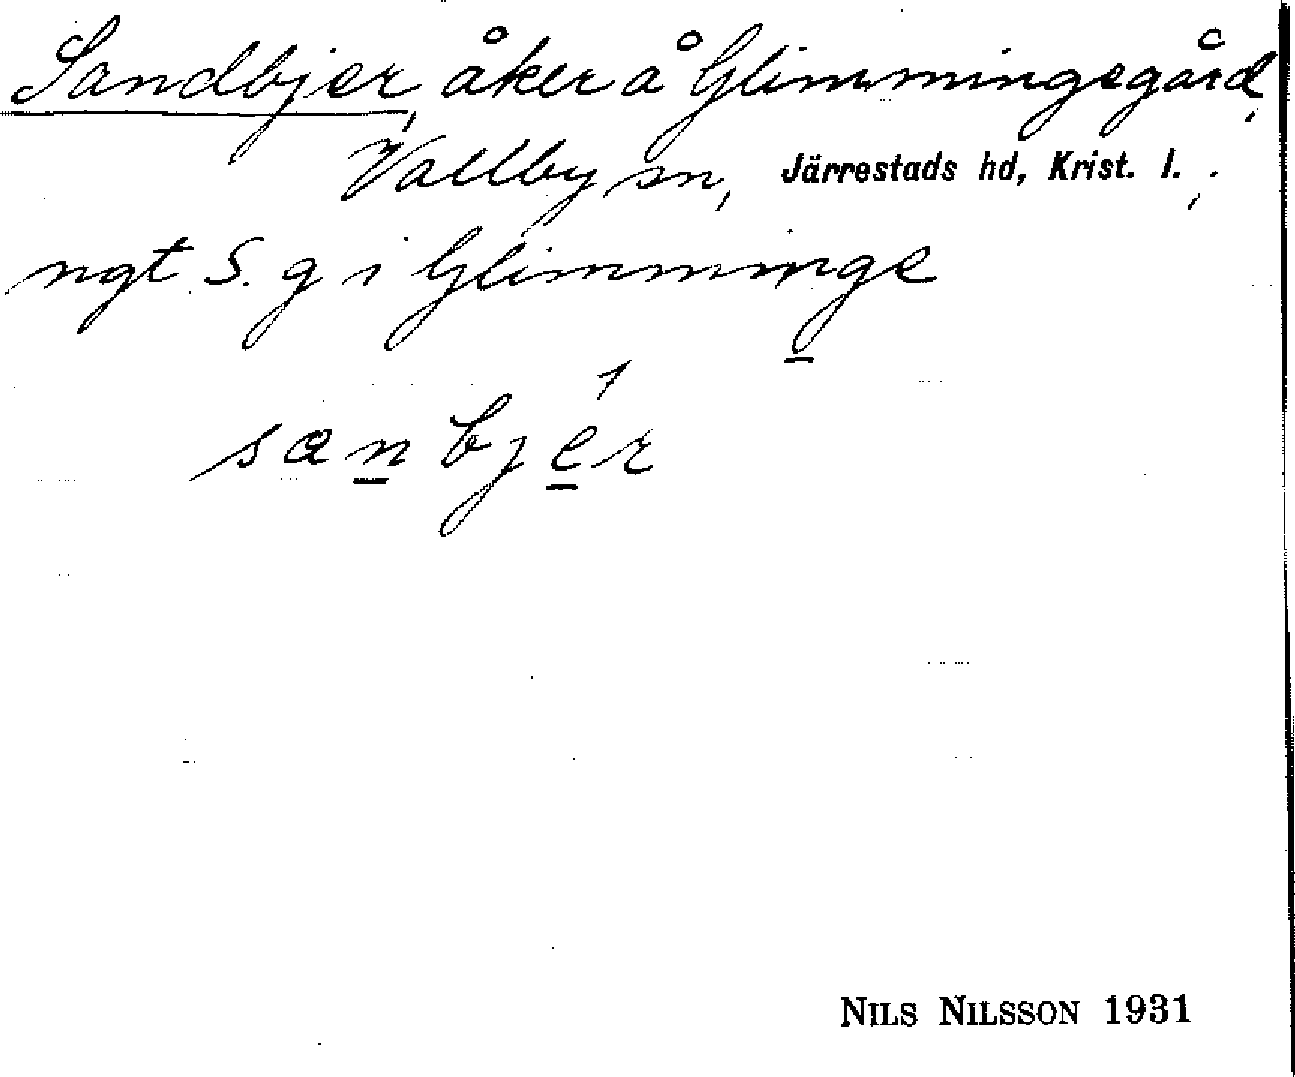 Sandbjer, åker å Glimmingegård,
Vallby sn, Järrestads hd, Krist. l.;
ngt S. g i Glimminge
sanbjér
NILS NILSSON 1931